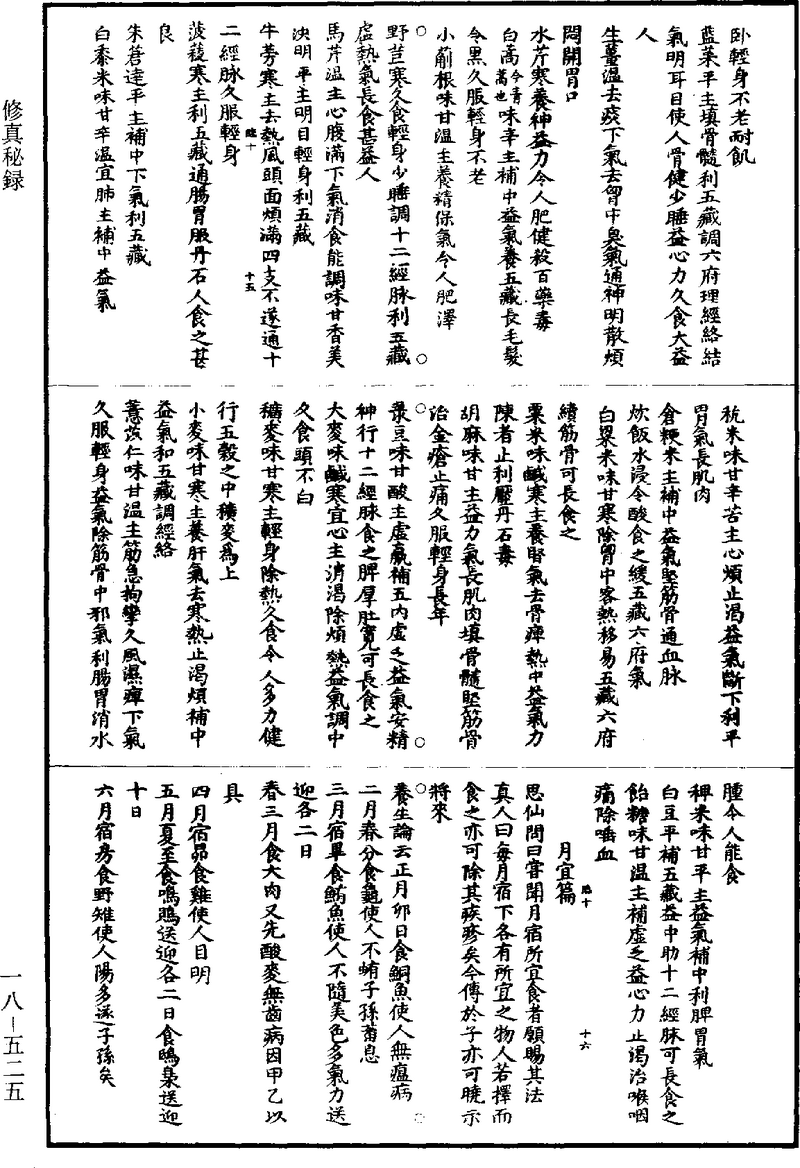 卧輕身不老耐飢
藍菜平主填骨髓利五藏調六府理經絡結
氣明耳目使人骨健少睡益心力久食大益
人
生薑温去痰下氣去胷中臭氣通神明散煩
悶開胃口
水芹寒養神益力令人肥健殺百藥毒
白蒿今青蒿也味辛主補中益氣養五藏長毛髮
令黑久服輕身不老
小薊根味甘温主養精保氣令人肥澤
野苣寒久食輕身少睡調十二經脉利五藏
虚熱氣長食甚益人
馬芹温主心腹滿下氣消食能調味甘香美
決明平主明目輕身利五藏
牛蒡寒主去熱風頭面煩滿四支不遂通十
臨十
十五
二經脉久服輕身
菠薐寒主利五藏通腸胃服丹石人食之甚
良
朱荅達平主補中下氣利五藏
白黍米味甘辛温宜肺主補中益氣
秔米味甘辛苦主心煩止渴益氣斷下利平
胃氣長肌肉
倉粳米主補中益氣堅筋骨通血脉
炊飯水浸令酸食之緩五藏六府氣
白粱米味甘寒除胷中客熱移易五藏六府
續筋骨可長食之
粟米味鹹寒主養腎氣去骨痺熱中益氣力
陳者止利壓丹石毒
胡麻味甘主益力氣長肌肉填骨髓堅筋骨
治金瘡止痛久服輕身長年
菉豆味甘酸主虚羸補五内虚乏益氣安精
神行十二經脉食之脾厚肚寬可長食之
大麥味鹹寒宜心主消渴除煩熱益氣調中
久食頭不白
穬麥味甘寒主輕身除熱久食令人多力健
行五穀之中穬麥爲上
小麥味甘寒主養肝氣去寒熱止渴煩補中
益氣和五藏調經絡
薏苡仁味甘温主筋急拘攣久風濕痺下氣
久服輕身益氣除筋骨中邪氣利腸胃消水
腫令人能食
稗米味甘平主益氣補中利脾胃氣
白豆平補五藏益中助十二經脉可長食之
飴糖味甘温主補虚乏益心力止渴治喉咽
痛除唾血
月宜篇
臨十
十六
思仙問曰嘗聞月宿所宜食者願賜其法
真人曰每月宿下各有所宜之物人若擇而
食之亦可除其疾疹矣今傳於子亦可曉示
將來
養生論云正月卯日食鮰魚使人無瘟病
二月春分食龜使人不蛕子孫蓄息
三月宿畢食鮪魚使人不隨美色多氣力送
迎各二日
春三月食大肉又先酸麥無齒病因甲乙以
具
四月宿昴食雞使人目明
五月夏至食鳴鵰送迎各二日食鴟梟送迎
十日
六月宿房食野雉使人陽多滋子孫矣
修真秘録
一八－五二五